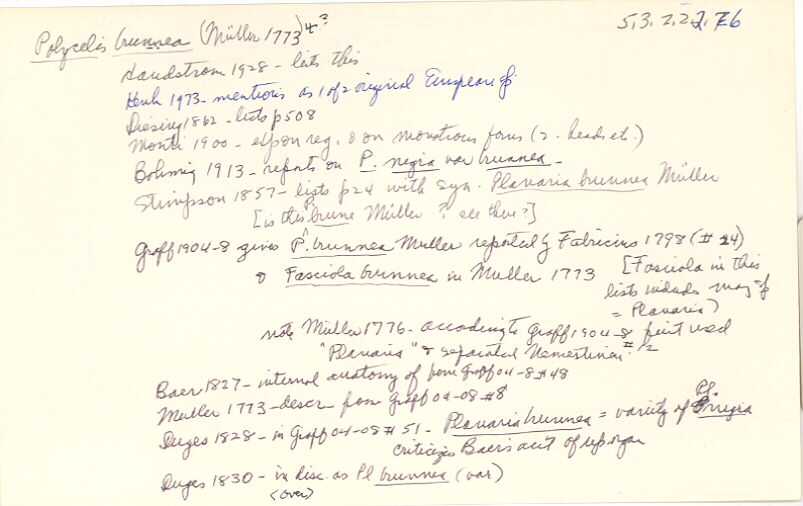 5.3.2.2.2.76
Polycelis brunnea (Müller 1773) 4?
Handstrom 1928 - lists this
Henk 1973 - mentions as 1 of 2 original European sp
Diesing 1862 - lists p508
Monti 1900 - exp on reg. & on monstrous forms (2-heads etc.)
Bohmig 1913 - reports on P. negra var brunnea -
Stimpson 1857 - lists p24 with syn. Planaria brunnea Müller
[is this P. brune Müller? see there?]
Graff 1904-8 gives P. brunnea Muller reported by Fabricius 1798 (#24)
& Fasciola brunnea in Muller 1773 [Fasciola in this
lists includes many sp
= Planaria)
note Müller 1776 - according to Graff 1904-8 first used
"Planaria" & separated Nemertinea #12
Baer 1827 - internal anatomy of from Graff 04-8 #48
Muller 1773 - descr - from Graff 04-08 #8
Duges 1828 - in Graff 04-08 #51 - Planaria brunnea = variety of Pl. nigra
criticizes Baer's acct of rep. organ
Duges 1830 - in disc. as Pl brunnea (var)
(over)